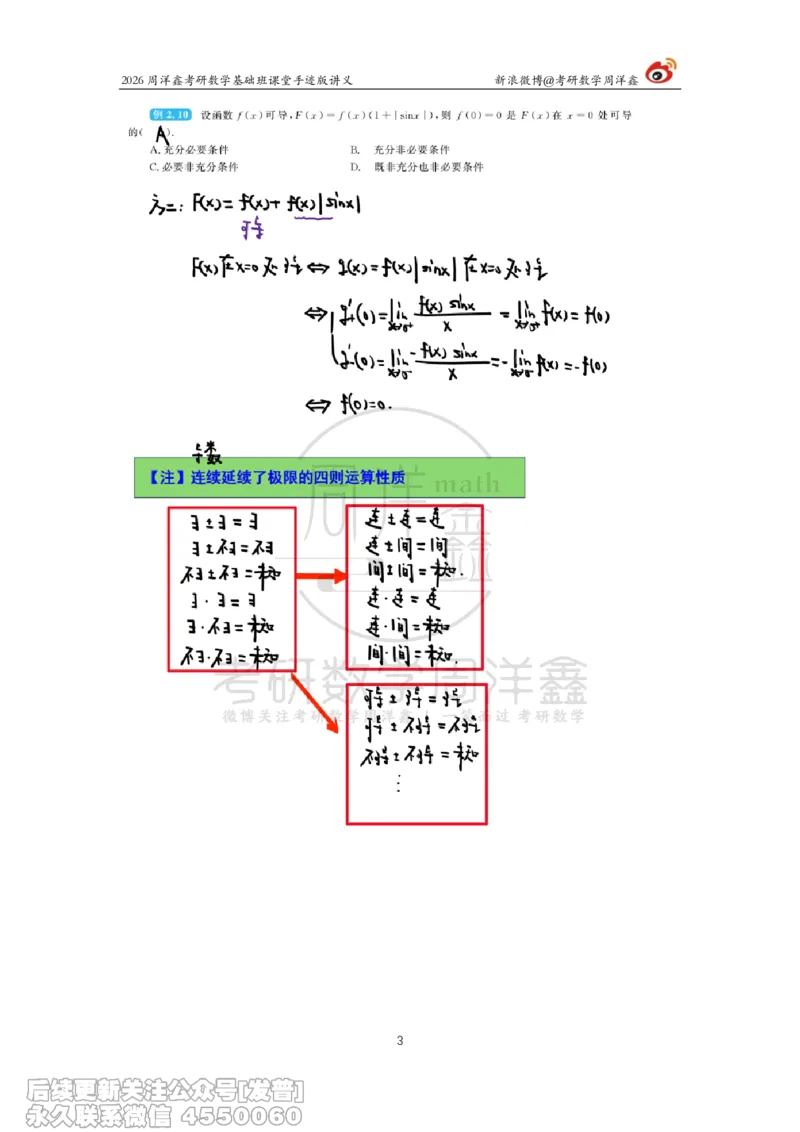 2026 周洋鑫考研数学基础班课堂手迹版讲义 新浪微博@考研数学周洋鑫
例 2.10 设函数 f(x)可导,F(x)=f(x)(1+|sinx|),则 f(0)=0 是 F(x)在 x=0 处可导
的( A ).
A. 充分必要条件 B. 充分非必要条件
C. 必要非充分条件 D. 既非充分也非必要条件
法二: F(x)= f(x)+ f(x)|sinx|
可导
F(x)在x=0处可导⇔ g(x)=f(x)|sinx|在x=0处可导
⇔ g'₊(0)=lim x→0⁺ f(x) sinx / x = lim x→0⁺ f(x)= f(0)
g'₋(0)=lim x→0⁻ -f(x) sinx / x =-lim x→0⁻ f(x) =-f(0)
⇔ f(0)=0.
导数
【注】连续延续了极限的四则运算性质
∃±∃=∃
∃±不∃=不∃
不∃±不∃=未知
∃·∃=∃
∃·不∃=未知
不∃·不∃=未知
连±连=连
连±间=间
间±间=未知.
连·连=连
连·间=未知
间·间=未知.
可导±可导=可导
可导±不可导=不可导
不可导±不可导=未知
⋮
周洋鑫
math
考研数学周洋鑫
微博关注考研数学周洋鑫
考研数学
3
后续更新关注公众号[发普]
永久联系微信 4550060